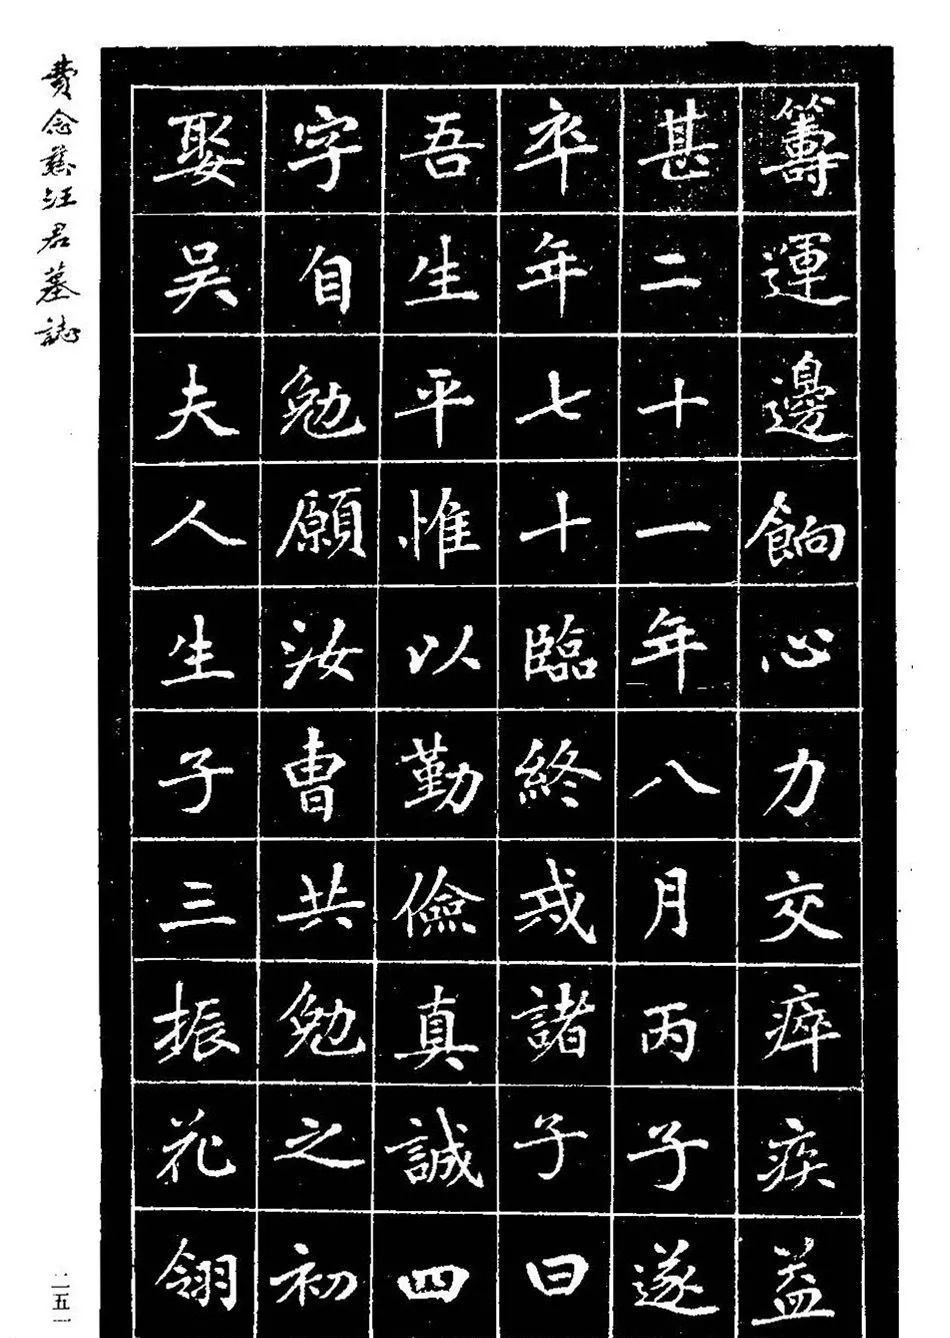 籌運邊餉心力交瘁疾益
甚二十一年八月丙子遂
卒年七十臨終戒諸子曰
吾生平惟以勤儉真誠四
字自勉願汝曹共勉之初
娶吳夫人生子三振花翎
費念慈汪君墓誌
二五一